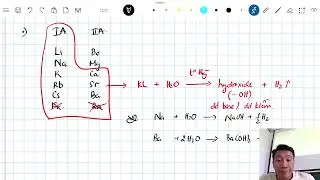 IA IIA
Li Be
Na Mg
K Ca
Rb Sr
Cs Ba
KL + H₂O → t° thg hydroxide + H₂↑
(-OH)
dd base / dd kiềm
Na + H₂O → NaOH + ½H₂
Ba + 2H₂O → Ba(OH)₂ +